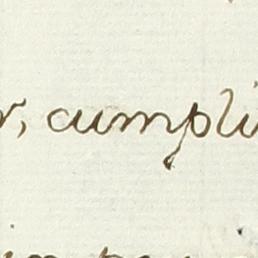 r, cumpli